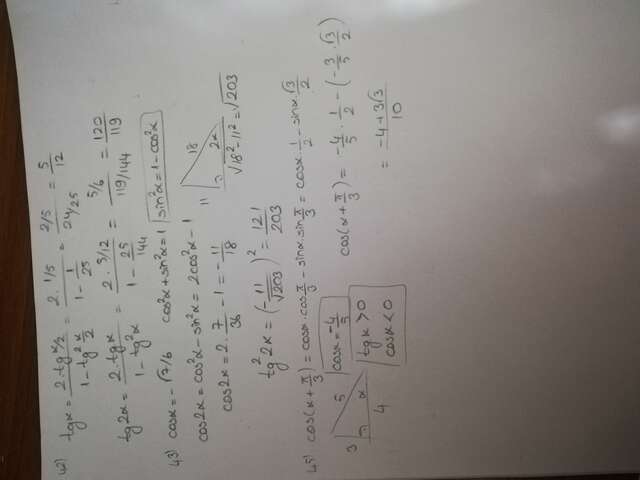 42) tgx = 2.tg x/2 / 1-tg² x/2 = 2.1/5 / 1- 1/25 = 2/5 / 24/25 = 5/12
tg2x = 2.tgx / 1-tg²x = 2.5/12 / 1- 25/144 = 5/6 / 119/144 = 120/119
43) cosx = -√7/6 cos²x+sin²x=1 sin²x=1-cos²x
cos2x = cos²x - sin²x = 2cos²x - 1
cos2x = 2. 7/36 -1 = -11/18
11 18 2x √18²-11² = √203
tg²2x = (-11/√203)² = 121/203
45) cos(x+π/3) = cosx.cosπ/3 - sinx.sinπ/3 = cosx.1/2 - sinx.√3/2
3 5 x 4
cosx=-4/5
tgx>0
cosx<0
cos(x+π/3) = -4/5 . 1/2 - (-3/5 . √3/2)
= -4+3√3 / 10